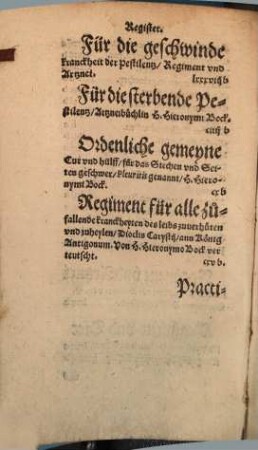 Register.
Für die geschwinde
kranckheit der Pestilentz / Regiment vnd
Artznei. lxxxviij b
Für die sterbende Pe-
stilentz / Artzneibüchlin H. Hieronymi Bock.
ciiij b
Ordenliche gemeyne
Cut vnd hülff / für das Stechen vnd Sei-
ten geschwer / Pleuritis genannt / H. Hiero-
nymi Bock. cx b
Regiment für alle zů-
fallende kranckheyten des leibs zu verhüten
vnd zuheylen / Dioclis Carystij / ann König
Antigonum. Von H. Hieronymo Bock ver
teutscht. cxv b.
Practi-